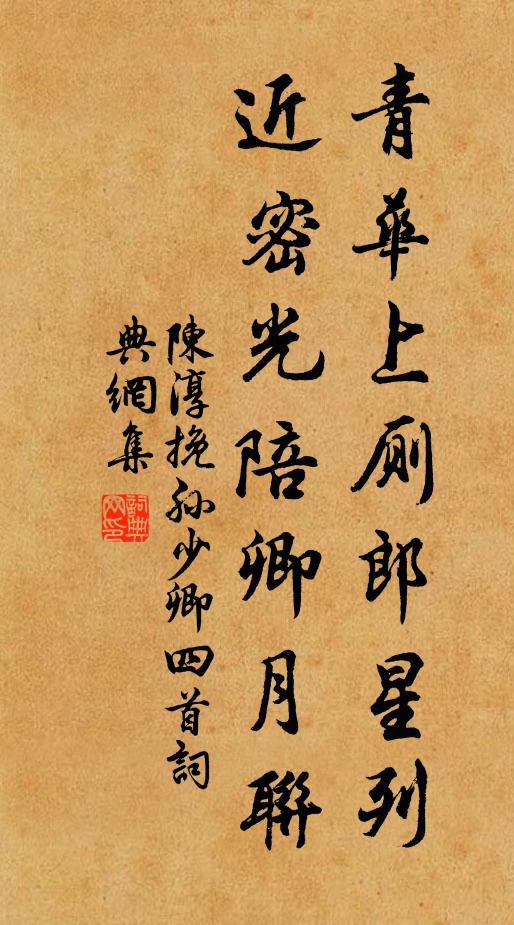 青華上厠郎星列
近密光陪卿月聯
陳淳挽孫少卿四首詞
典網集
詞典
网印